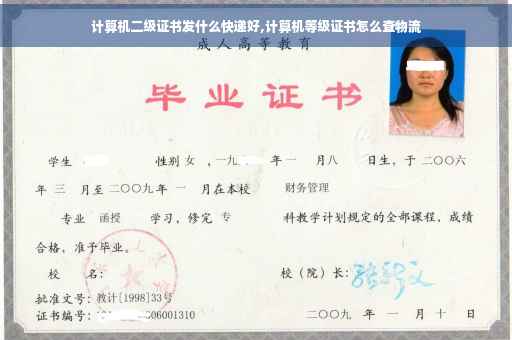 计算机二级证书发什么快递好,计算机等级证书怎么查物流
成人高等教育
毕业证书
学生 性别 女 ,一九 年 一 月八 日生，于 二〇〇六
年 三 月至 二〇〇九 年 一 月在本校 财务管理
专业 函授 学习，修完 专 科教学计划规定的全部课程，成绩
合格，准予毕业。
校 名： 校（院）长：
批准文号：教计[1998]33号
证书编号： 06001310 二〇〇九 年 一 月 十 日